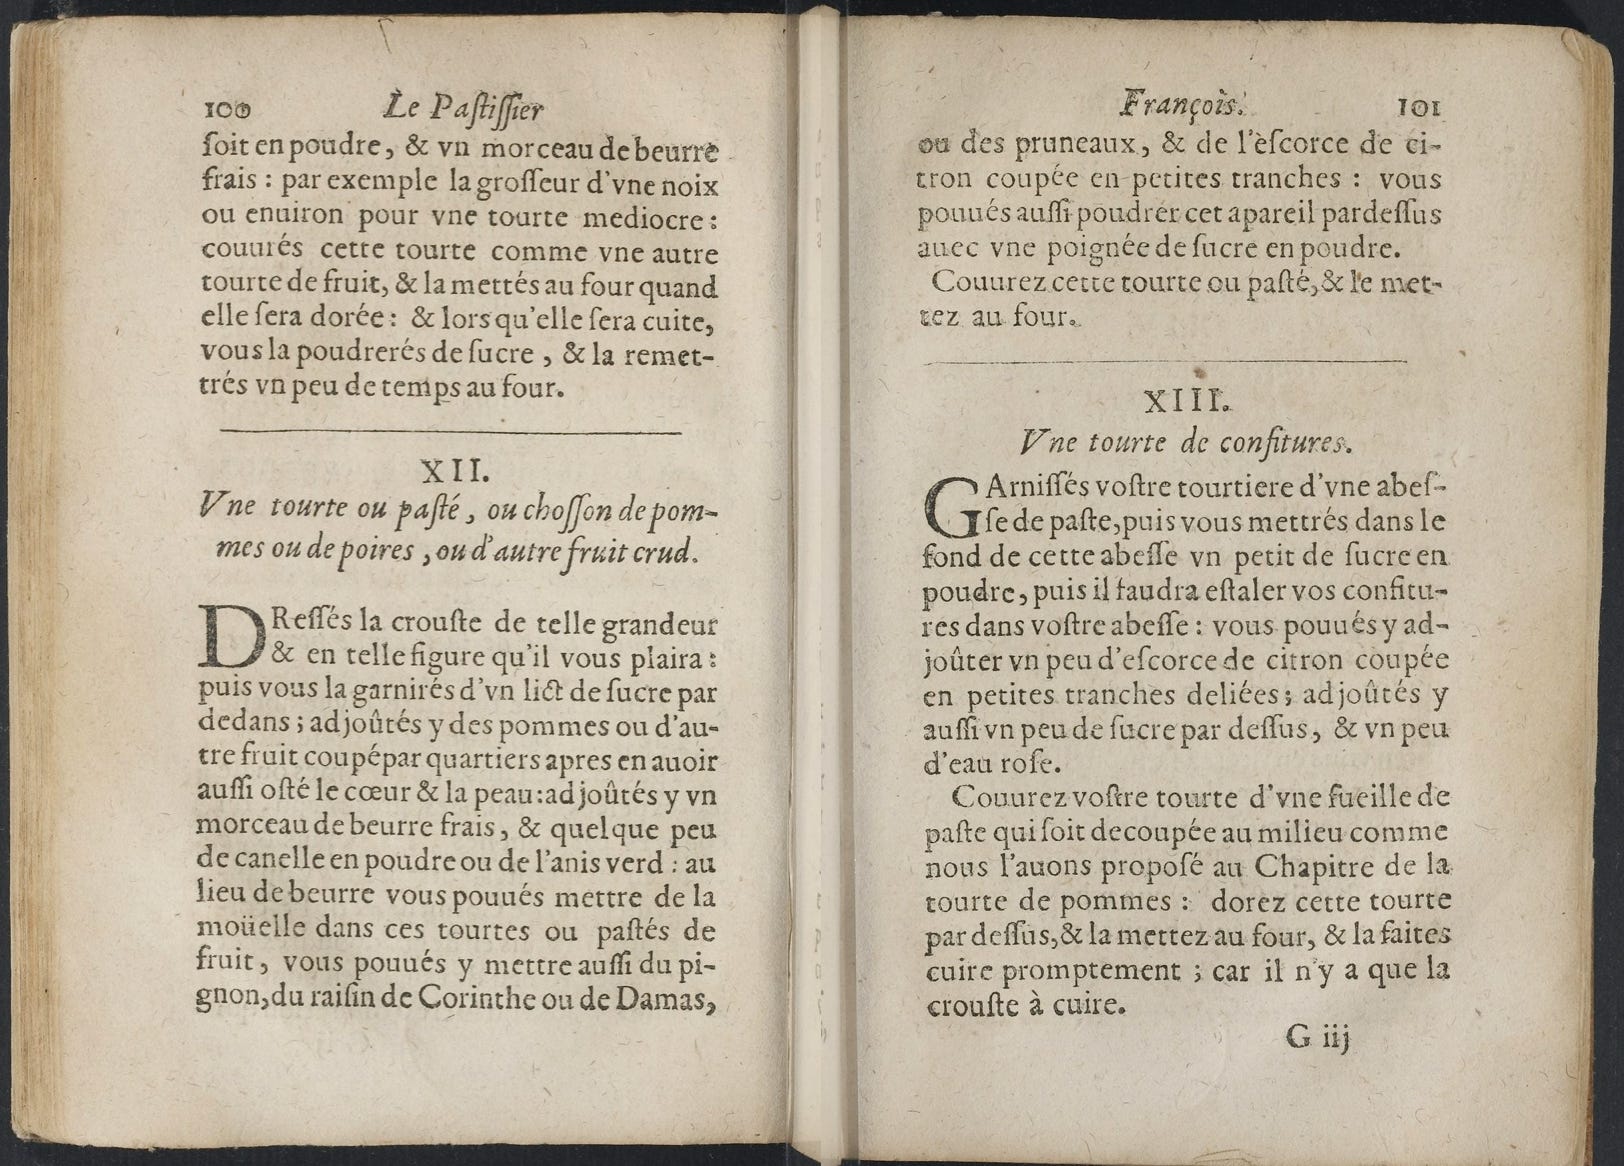 100 Le Paſtiſſier
ſoit en poudre, & vn morceau de beurre
frais : par exemple la groſſeur d'vne noix
ou enuiron pour vne tourte mediocre :
couurés cette tourte comme vne autre
tourte de fruit, & la mettés au four quand
elle ſera dorée : & lors qu'elle ſera cuite,
vous la poudrerés de ſucre , & la remet-
trés vn peu de temps au four.
XII.
Vne tourte ou paſté , ou choſſon de pom-
mes ou de poires , ou d'autre fruit crud.
DReſſés la crouſte de telle grandeur
& en telle figure qu'il vous plaira :
puis vous la garnirés d'vn lict de ſucre par
dedans ; adjoûtés y des pommes ou d'au-
tre fruit coupé par quartiers apres en auoir
auſſi oſté le cœur & la peau : adjoûtés y vn
morceau de beurre frais , & quelque peu
de canelle en poudre ou de l'anis verd : au
lieu de beurre vous pouués mettre de la
moüelle dans ces tourtes ou paſtés de
fruit , vous pouués y mettre auſſi du pi-
gnon, du raiſin de Corinthe ou de Damas,
François. 101
ou des pruneaux, & de l'eſcorce de ci-
tron coupée en petites tranches : vous
pouués auſſi poudrer cet apareil pardeſſus
auec vne poignée de ſucre en poudre.
Couurez cette tourte ou paſté, & le met-
tez au four.
XIII.
Vne tourte de confitures.
GArniſſés voſtre tourtiere d'vne abeſ-
ſe de paſte, puis vous mettrés dans le
fond de cette abeſſe vn petit de ſucre en
poudre, puis il faudra eſtaler vos confitu-
res dans voſtre abeſſe : vous pouués y ad-
joûter vn peu d'eſcorce de citron coupée
en petites tranches deliées ; adjoûtés y
auſſi vn peu de ſucre par deſſus, & vn peu
d'eau roſe.
Couurez voſtre tourte d'vne fueille de
paſte qui ſoit decoupée au milieu comme
nous l'auons propoſé au Chapitre de la
tourte de pommes : dorez cette tourte
par deſſus, & la mettez au four, & la faites
cuire promptement ; car il n'y a que la
crouſte à cuire.
G iij